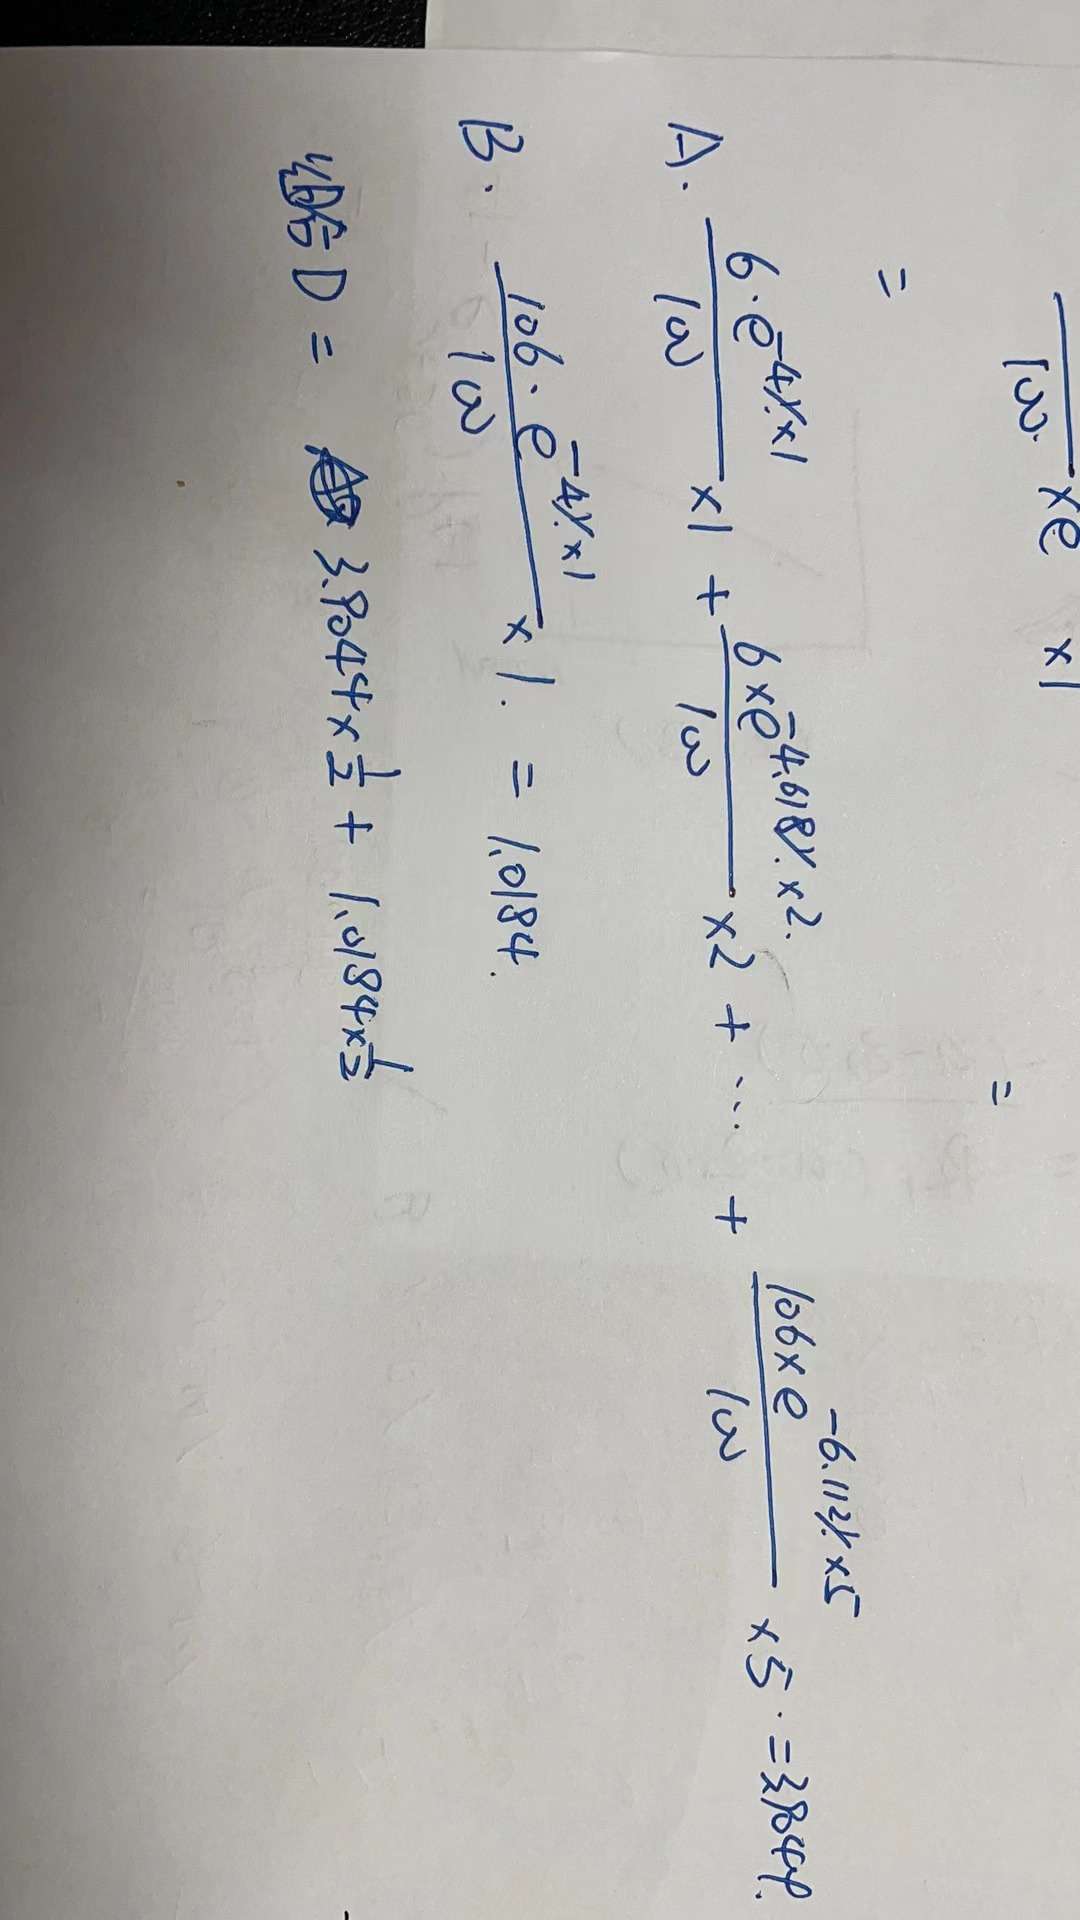 /100 ×e ×1
= =
A. 6·e^-4%×1/100 ×1 + 6×e^-4.618%×2./100 ×2 + ... + 106×e^-6.112%×5/100 ×5. =3.8044.
B. 106·e^-4%×1/100 ×1. = 1.0184.
D = 3.8044×1/2 + 1.0184×1/2